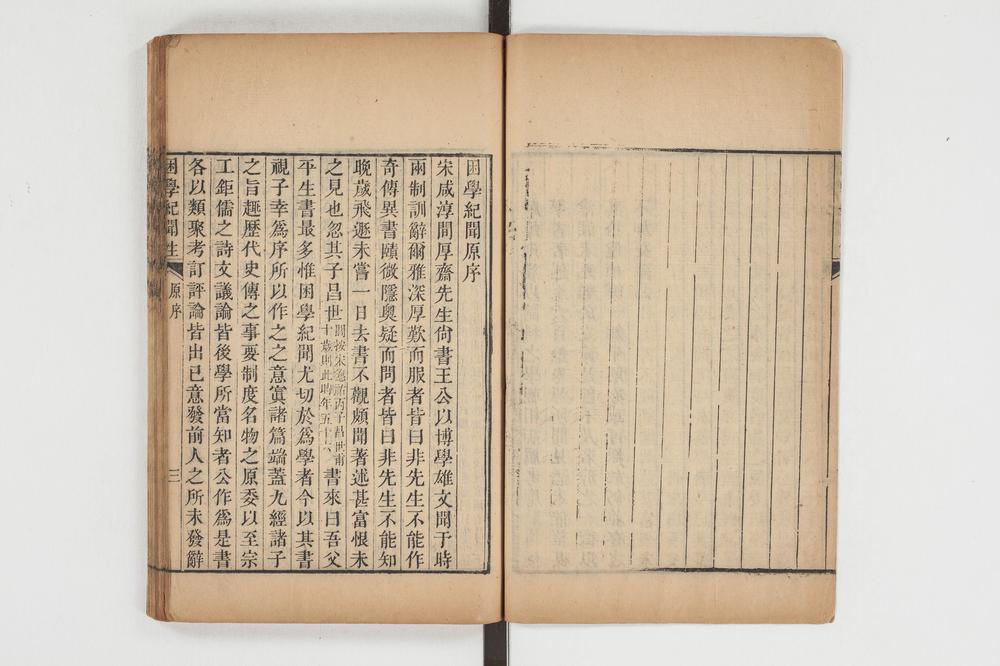 困學紀聞原序
宋咸淳間厚齋先生尙書王公以博學雄文聞于時
兩制訓辭爾雅深厚歎而服者皆曰非先生不能作
奇傳異書頤微隱奧疑而問者皆曰非先生不能知
晚歲飛遯未嘗一日去書不觀頗聞著述甚富恨未
之見也忽其子昌世閻按宋德祐丙子昌世甫十歲則此時年五十六書來曰吾父
平生書最多惟困學紀聞尤切於爲學者今以其書
視子幸爲序所以作之之意寘諸篇端蓋九經諸子
之旨趣歷代史傳之事要制度名物之原委以至宗
工鉅儒之詩文議論皆後學所當知者公作爲是書
各以類聚考訂評論皆出己意發前人之所未發辭
困學紀聞注 原序 三